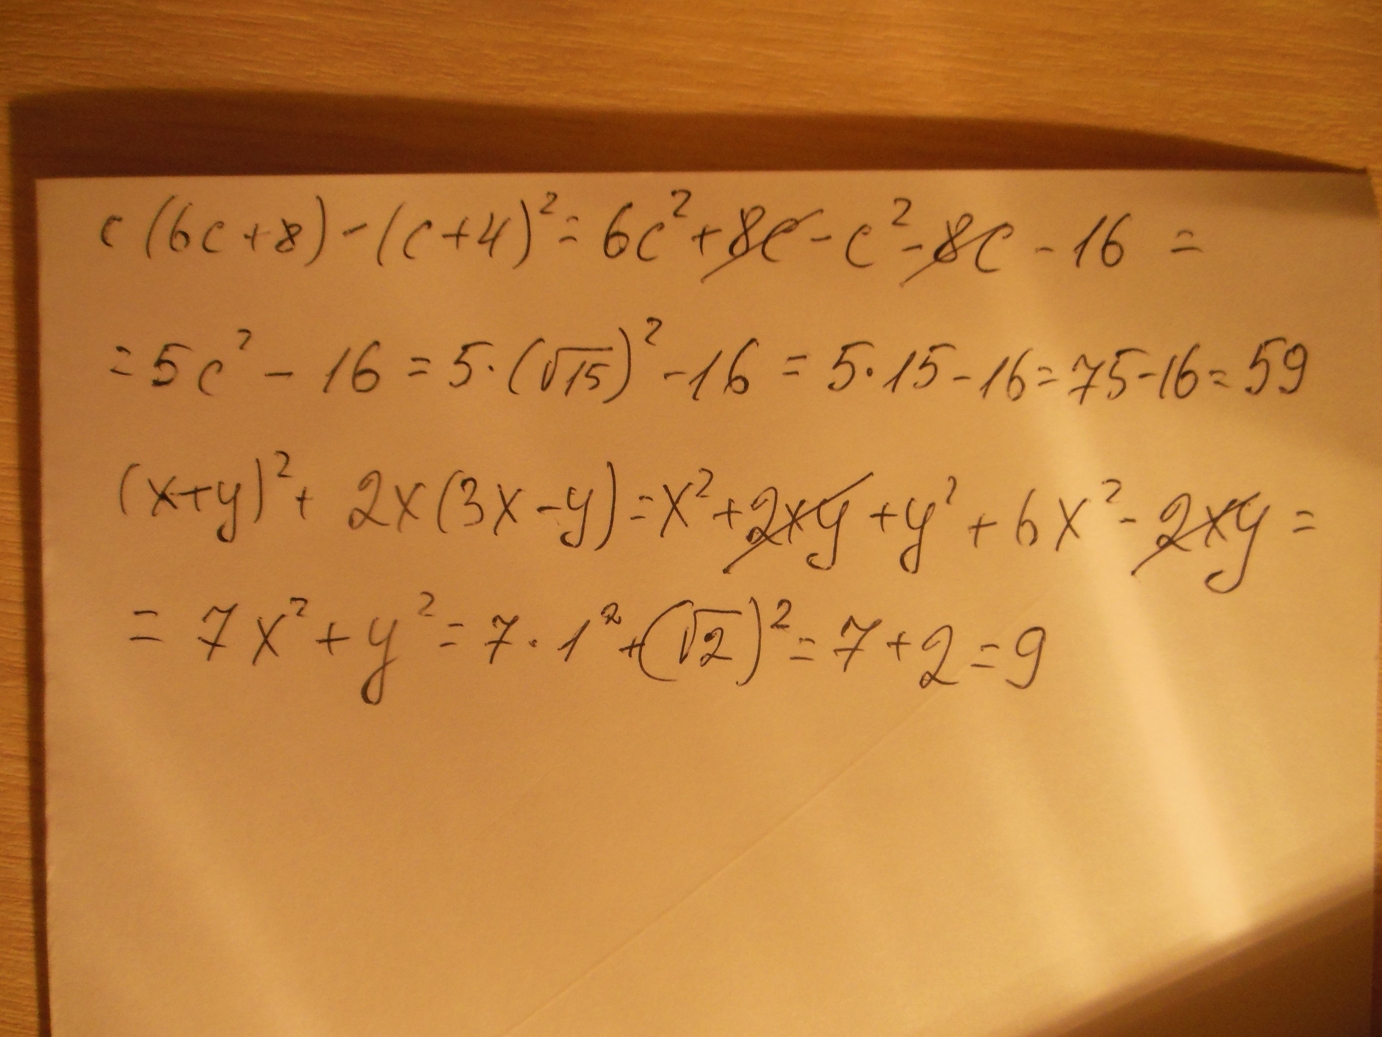 c(6c+8)-(c+4)²=6c²+8c-c²-8c-16=
=5c²-16=5·(√15)²-16=5·15-16=75-16=59
(x+y)²+2x(3x-y)=x²+2xy+y²+6x²-2xy=
=7x²+y²=7·1²+(√2)²=7+2=9